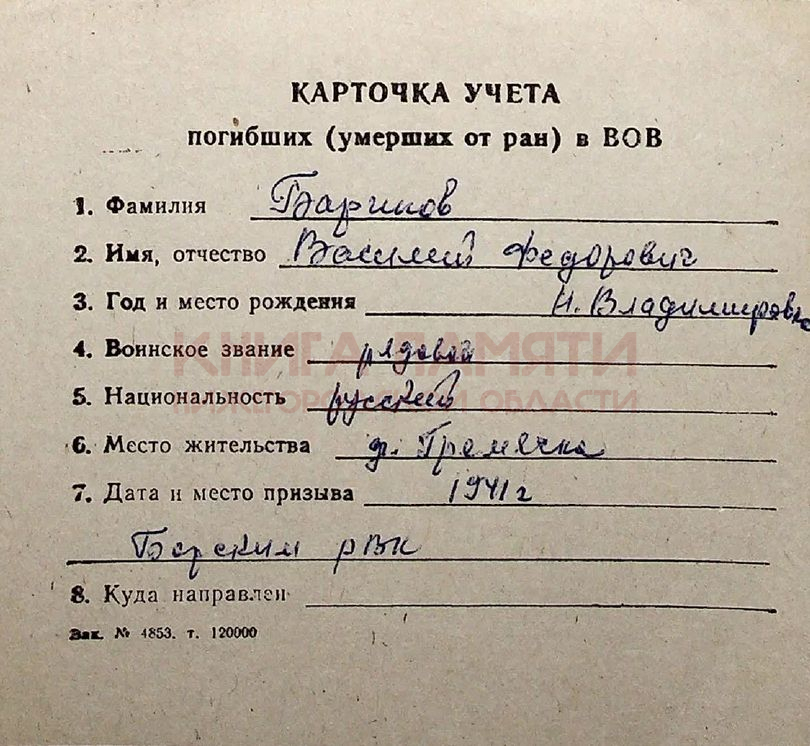 КАРТОЧКА УЧЕТА
погибших (умерших от ран) в ВОВ
1. Фамилия Баринов
2. Имя, отчество Василий Федорович
3. Год и место рождения Н. Владимировка
КНИГА ПАМЯТИ
4. Воинское звание рядовой
НИЖЕГОРОДСКОЙ ОБЛАСТИ
5. Национальность русский
6. Место жительства д. Гремячка
7. Дата и место призыва 1941 г
Борским РВК
8. Куда направлен
Зак. № 4853. т. 120000